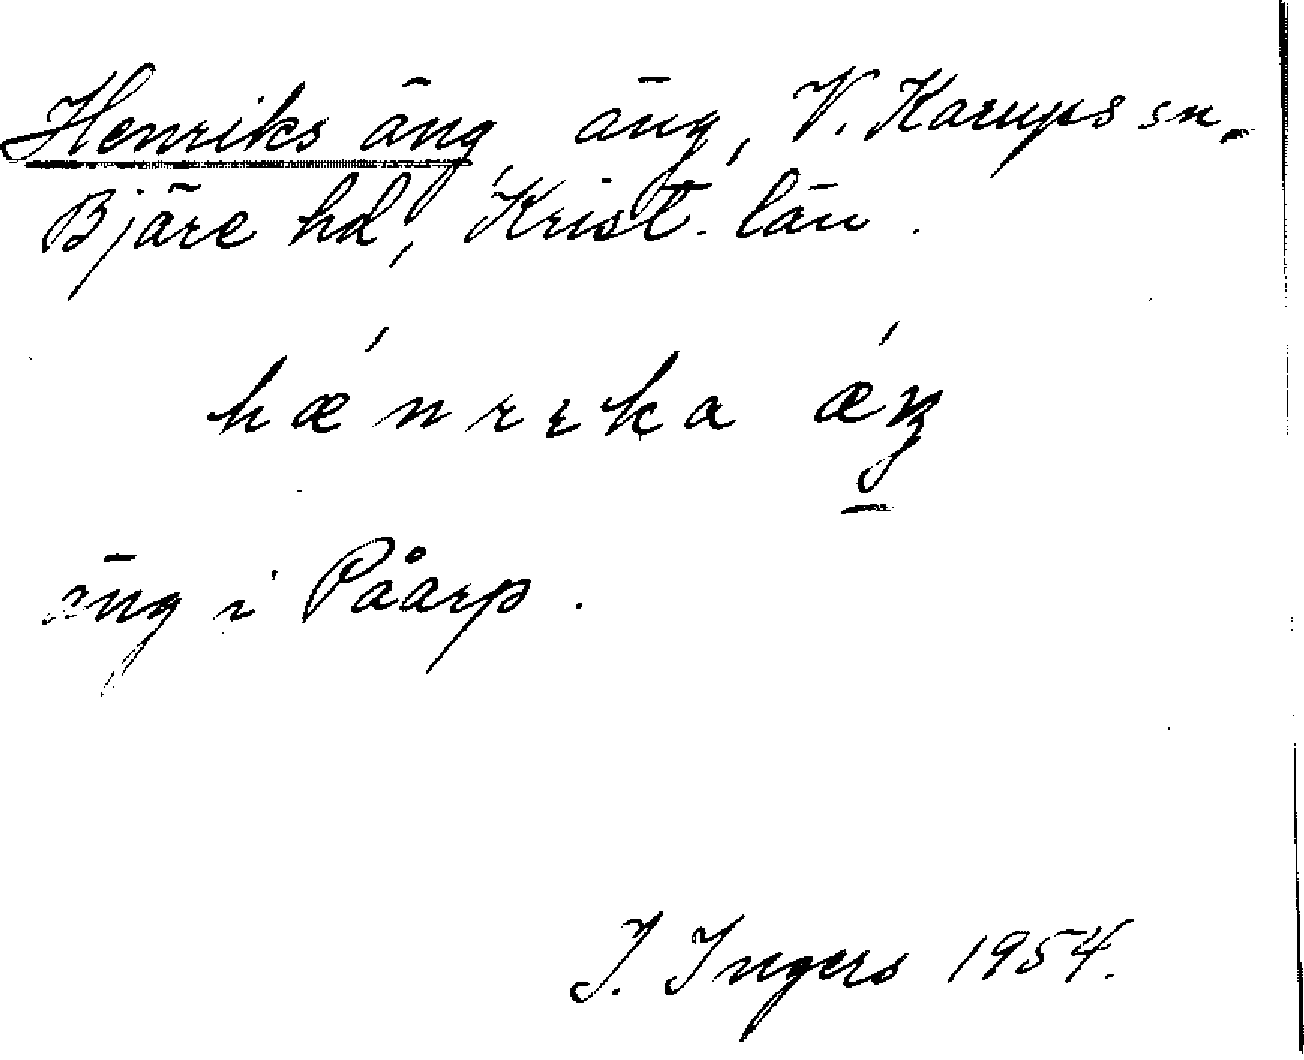 Henriks äng, äng, V. Karups sn.
Bjäre hd, Krist. län.
hǽnrɩka ǽŋ
äng i Påarp.
I. Ingers 1954.